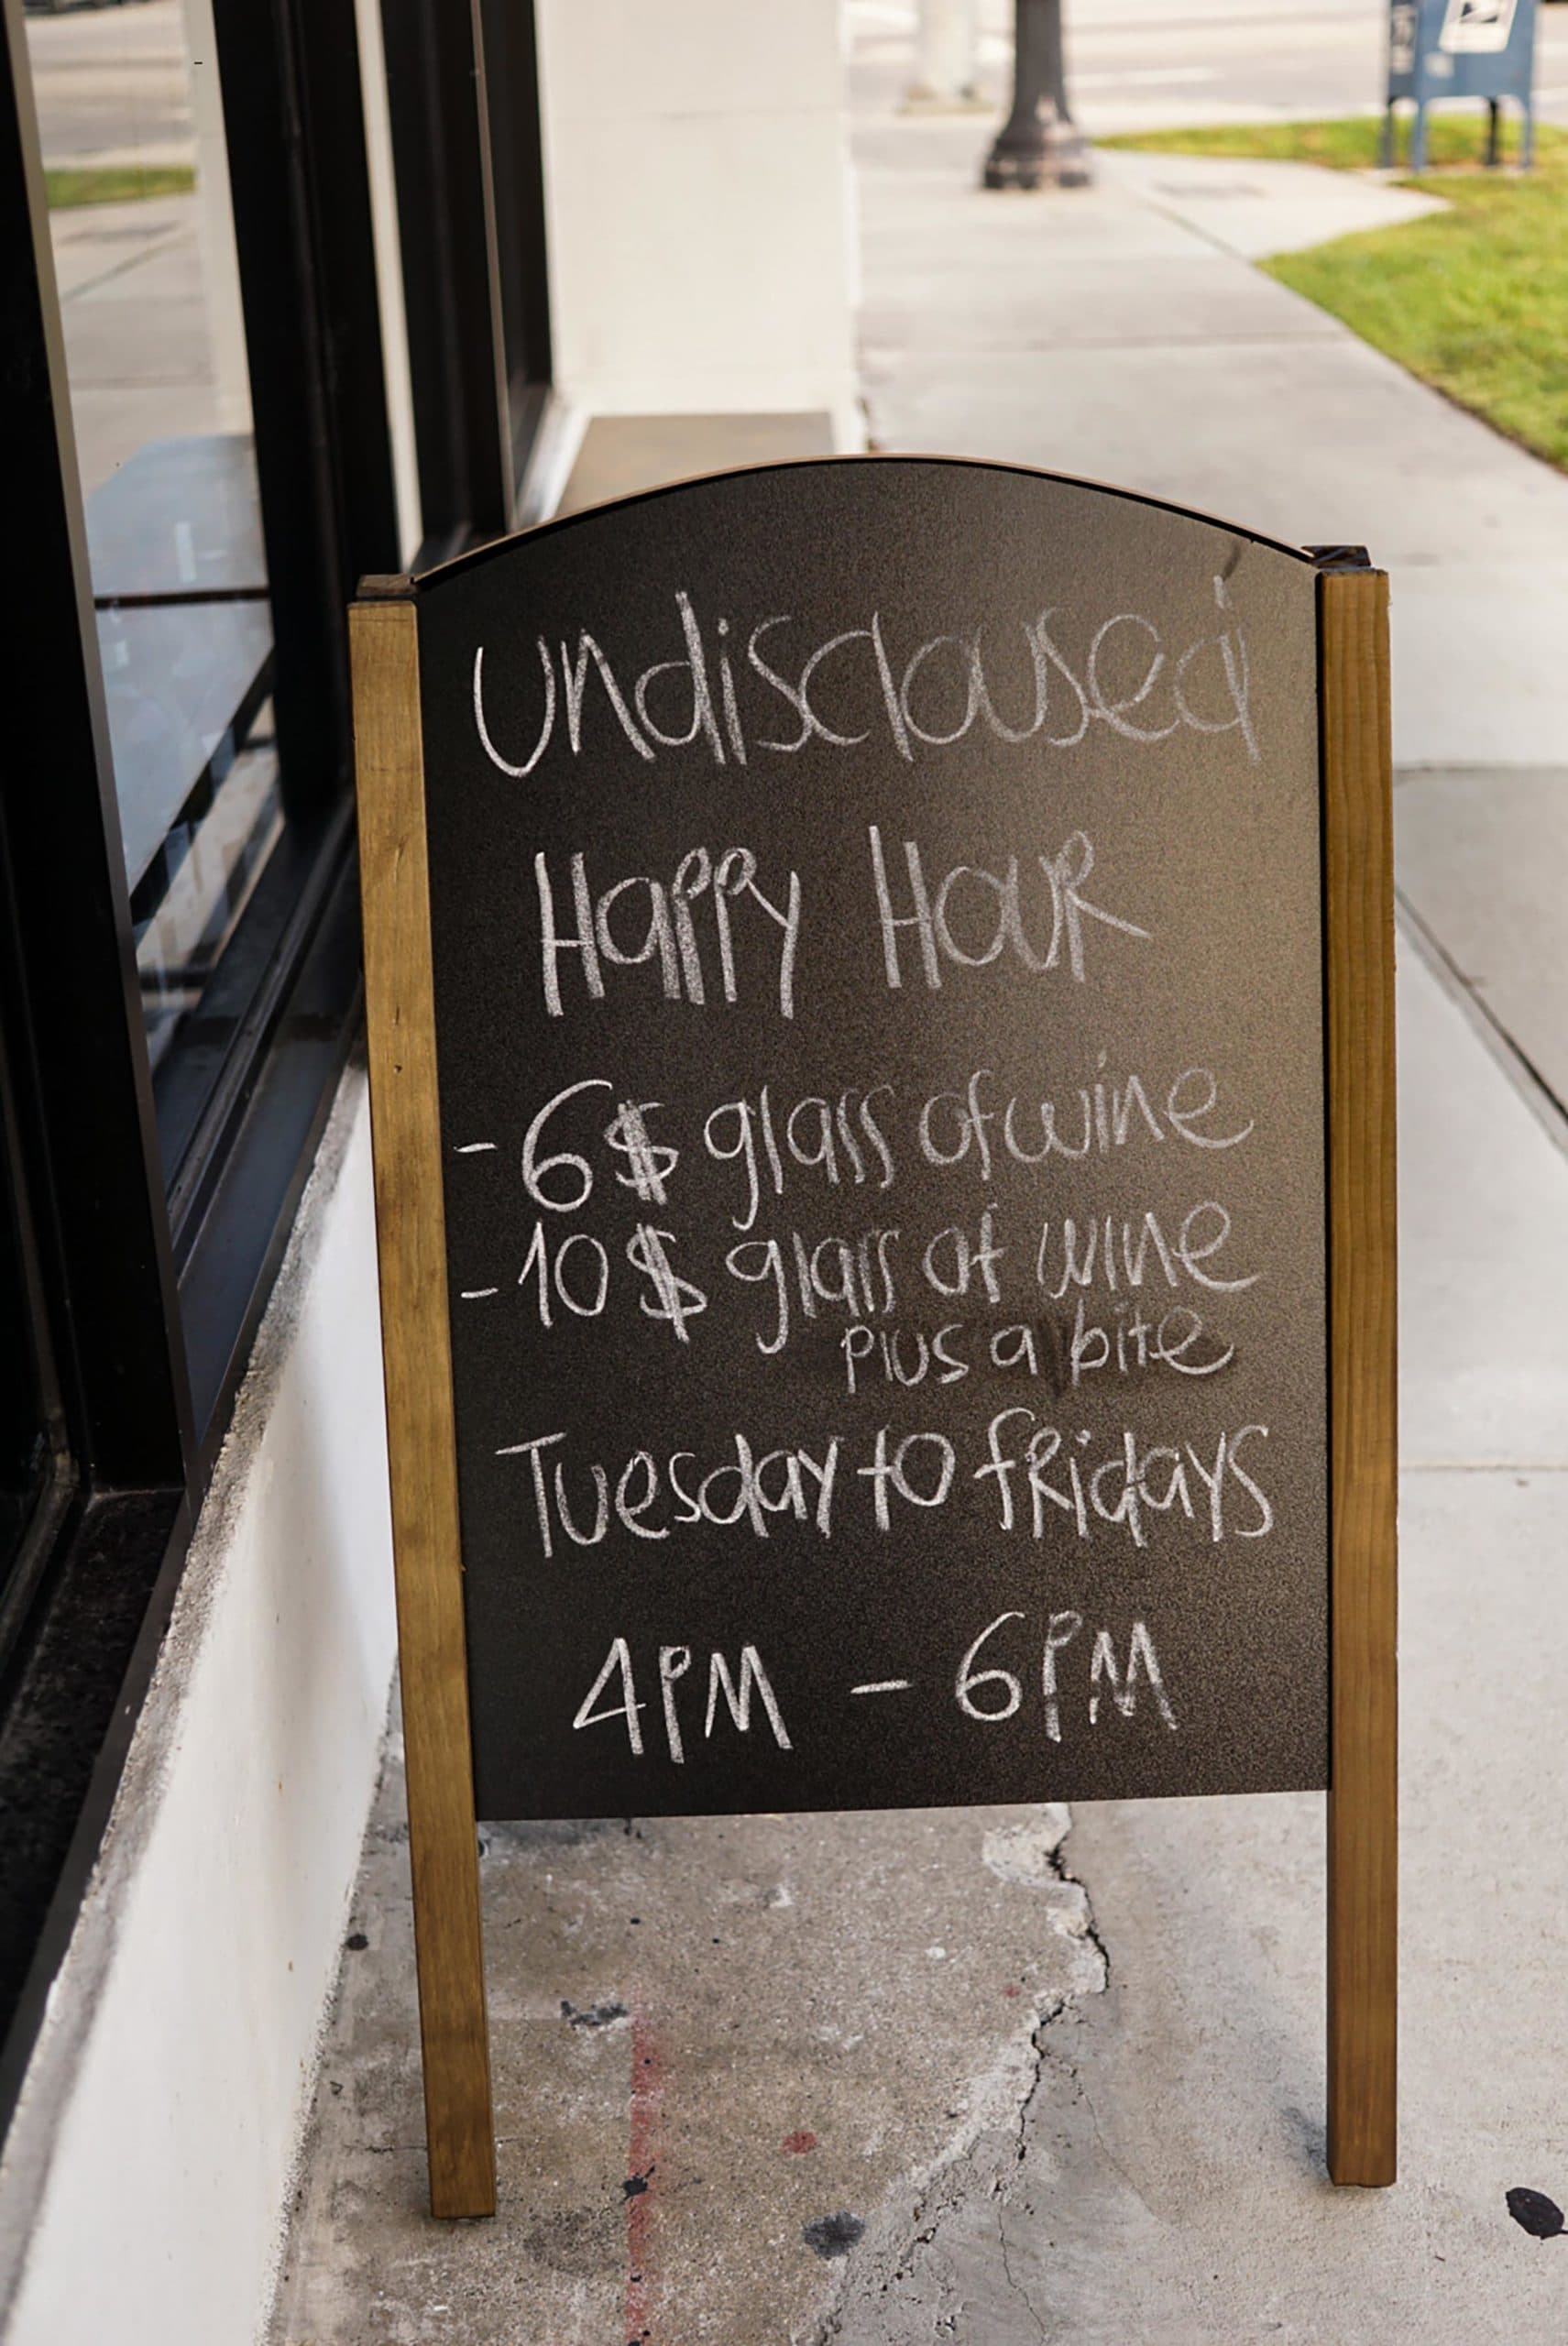 undisclosed
Happy Hour
-6$ glass of wine
-10$ glass of wine
plus a bite
Tuesday to fridays
4PM - 6PM